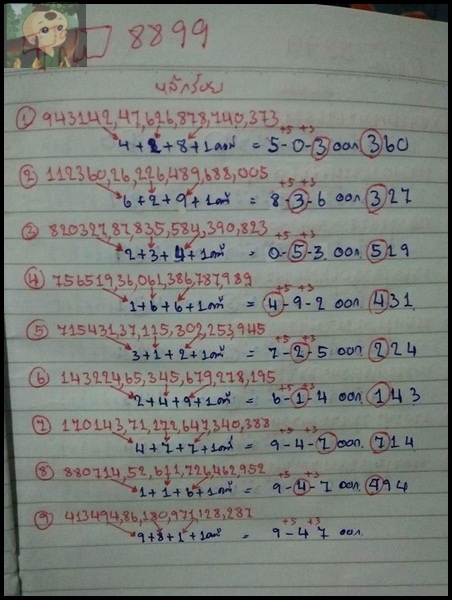 8899
หลักร้อย
① 943142,47,626,878,740,373
4+2+8+1คงที่ = 5-0-3 ออก 360
+5 +3
② 112360,26,226,489,688,005
6+2+9+1คงที่ = 8-3-6 ออก 327
+5 +3
③ 820327,87,835,584,390,823
2+3+4+1คงที่ = 0-5-3 ออก 519
+5 +3
④ 756519,36,061,386,787,989
1+6+6+1คงที่ = 4-9-2 ออก 431
+5 +3
⑤ 715431,37,125,302,253,945
3+1+2+1คงที่ = 7-2-5 ออก 224
+5 +3
⑥ 143224,65,345,679,278,195
2+4+9+1คงที่ = 6-1-4 ออก 143
+5 +3
⑦ 170143,71,272,647,340,388
4+7+7+1คงที่ = 9-4-7 ออก 714
+5 +3
⑧ 880714,52,611,726,462,952
1+1+6+1คงที่ = 9-4-7 ออก 494
+5 +3
⑨ 413494,86,180,971,128,287
9+8+1+1คงที่ = 9-47 ออก
+5 +3